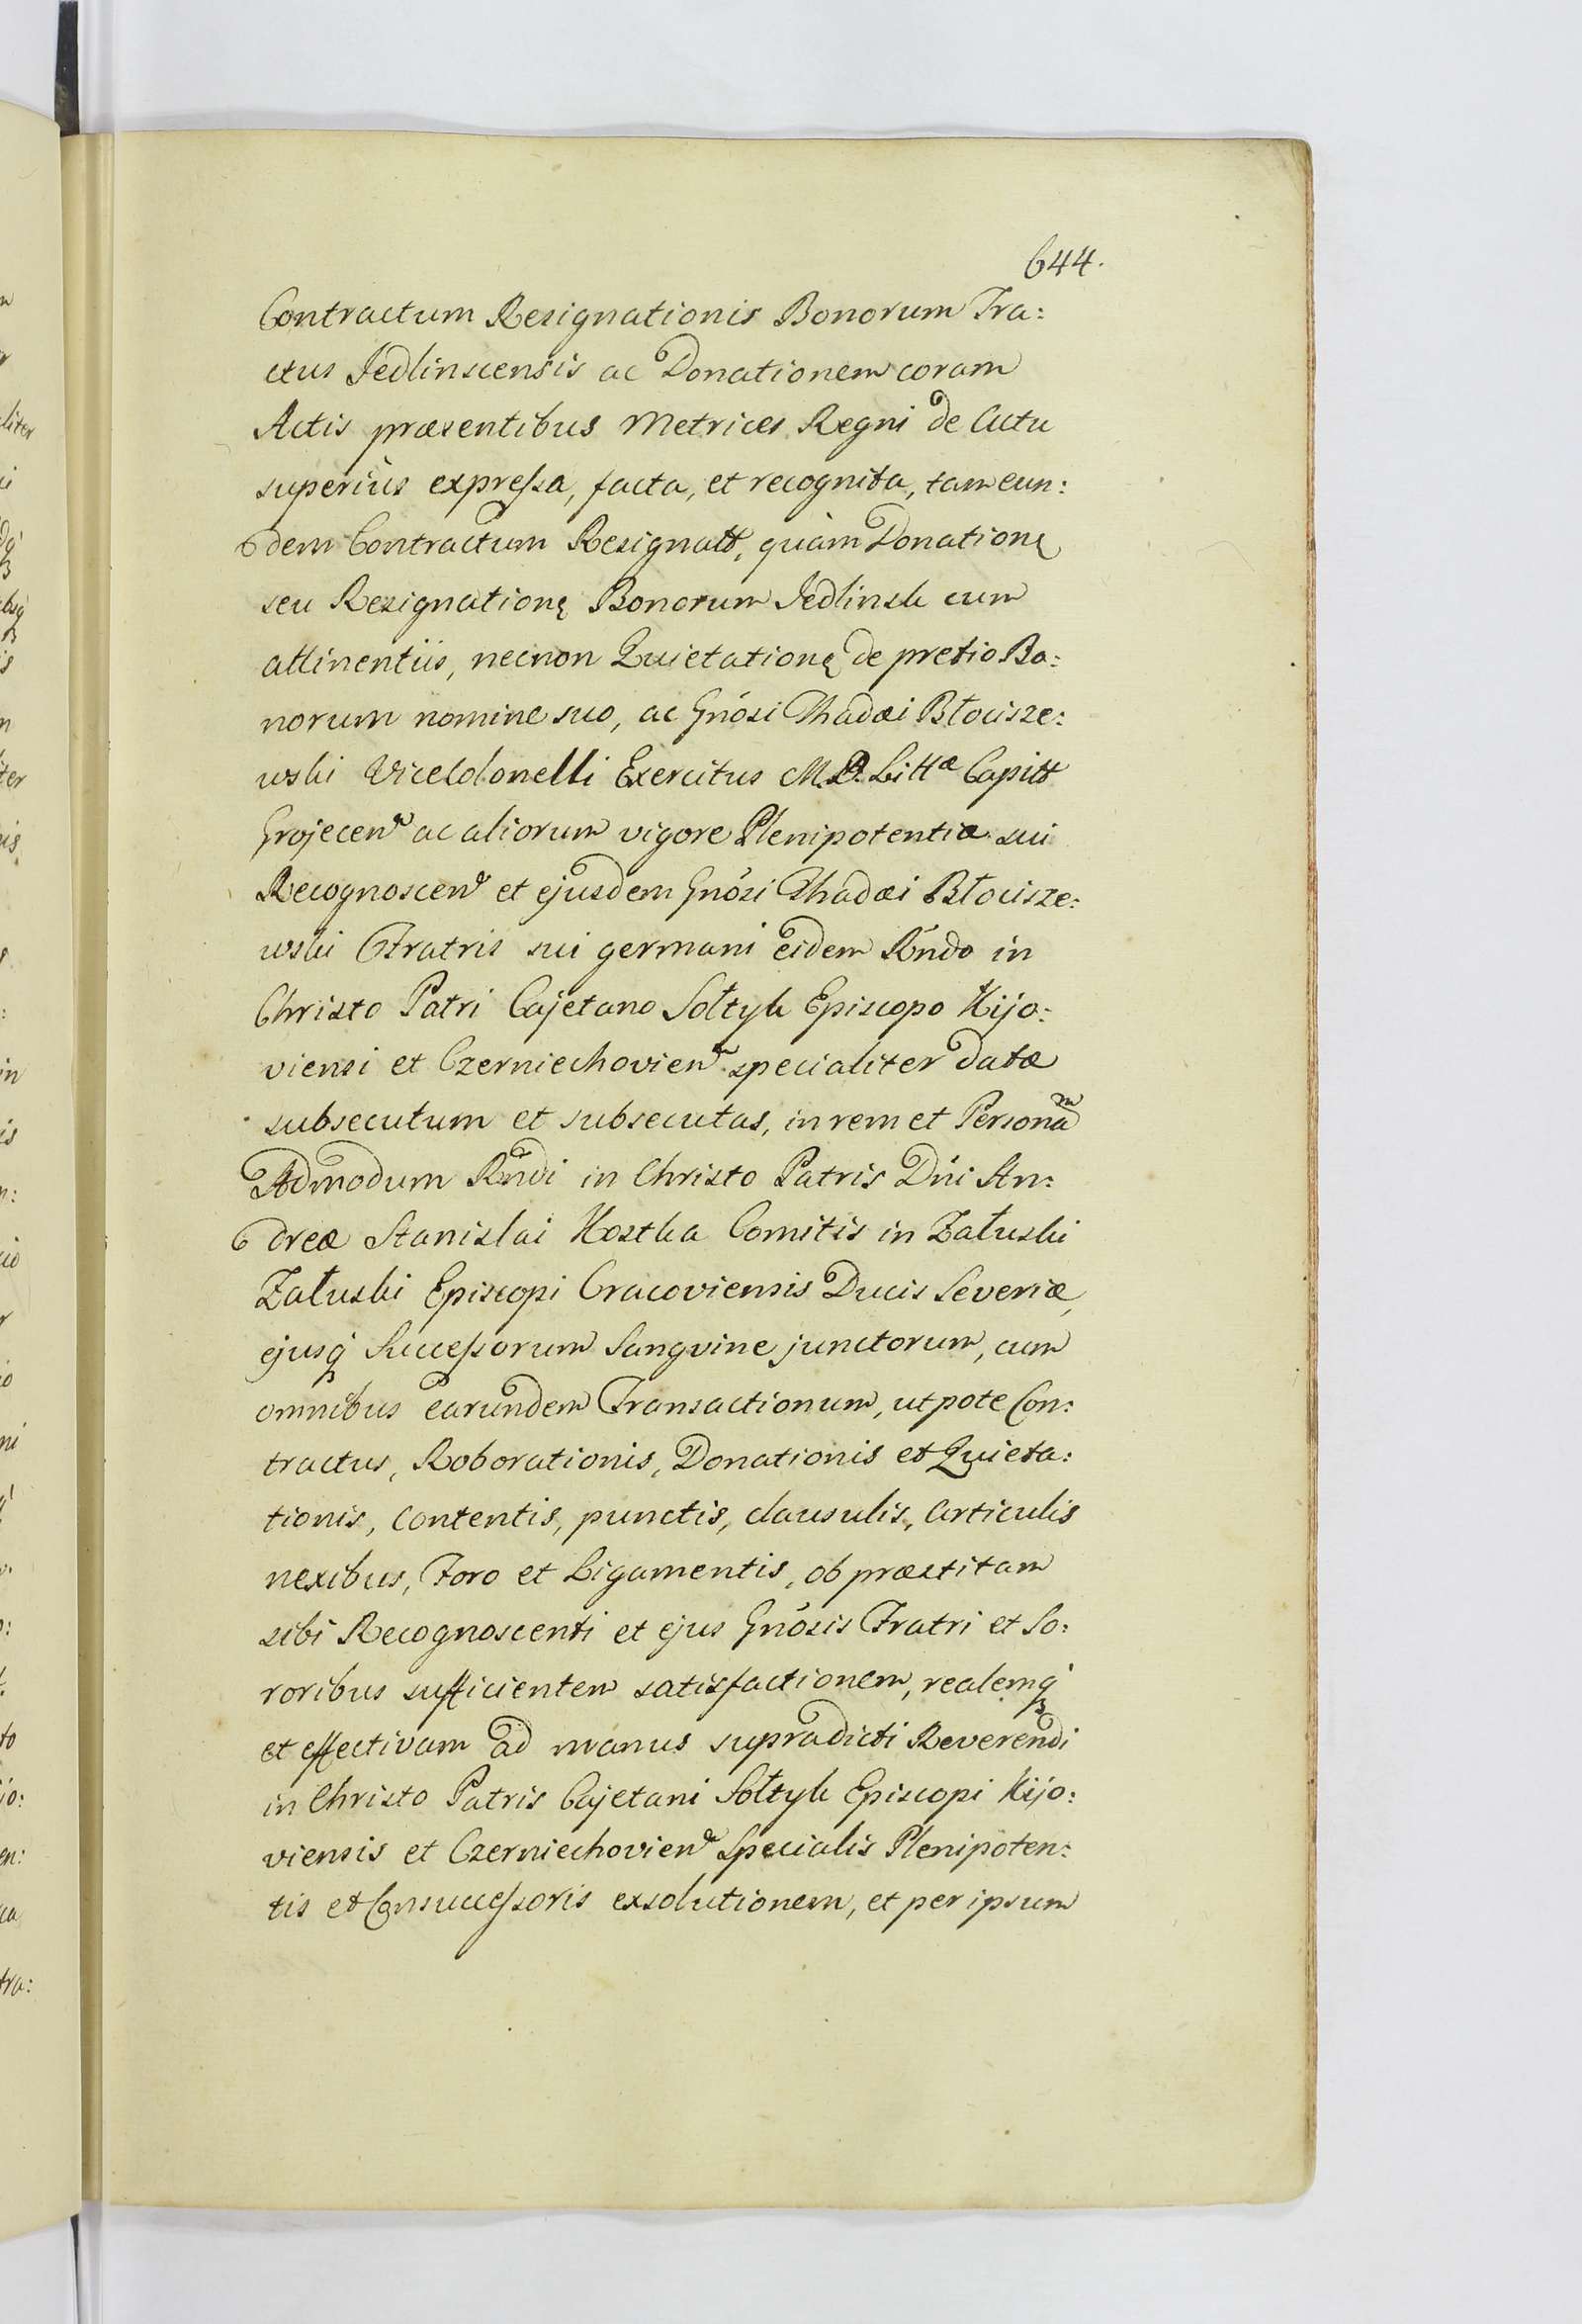 644.
Contractum Resignationis Bonorum Tra:
ctus Jedlinscensis ac Donationem coram
Actis præsentibus Metrices Regni de Actu
superiùs expressa, facta, et recognita, tam eun:
dem Contractum Resignatt, quàm Donationę
seu Resignationę Bonorum Jedlinsk cum
attinentiis, necnon Quietationę de pretio Bo:
norum nomine suo, ac Gnósi Thadæi Błocisze:
wski Vicecolonelli Exercitus M. D. Littæ Capitt
Grojecen ac aliorum vigore Plenipotentiæ sui
Recognoscen et ejusdem Gnósi Thadæi Błocisze:
wski Fratris sui germani eidem Rndo in
Christo Patri Cajetano Sołtyk Episcopo Kijo:
viensi et Czerniechovien specialiter datæ
subsecutum et subsecutas, in rem et Personam
Admodum Rndi in Christo Patris Dni An:
dreæ Stanislai Kostka Comitis in Załuski
Załuski Episcopi Cracoviensis Ducis Severiæ,
ejusq́ Successorum Sangvine junctorum, cum
omnibus earundem Transactionum, utpote Con:
tractus, Roborationis, Donationis et Quieta:
tionis, Contentis, punctis, clausulis, Articulis
nexibus, Foro et Ligamentis, ob præstitam
sibi Recognoscenti et ejus Gnósis Fratri et So:
roribus sufficientem satisfactionem, realemq́
et effectivam ad manus supradicti Reverendi
in Christo Patris Cajetani Sołtyk Episcopi Kijo:
viensis et Czerniechovien Specialis Plenipoten:
tis et Consuccessoris exsolutionem, et per ipsum